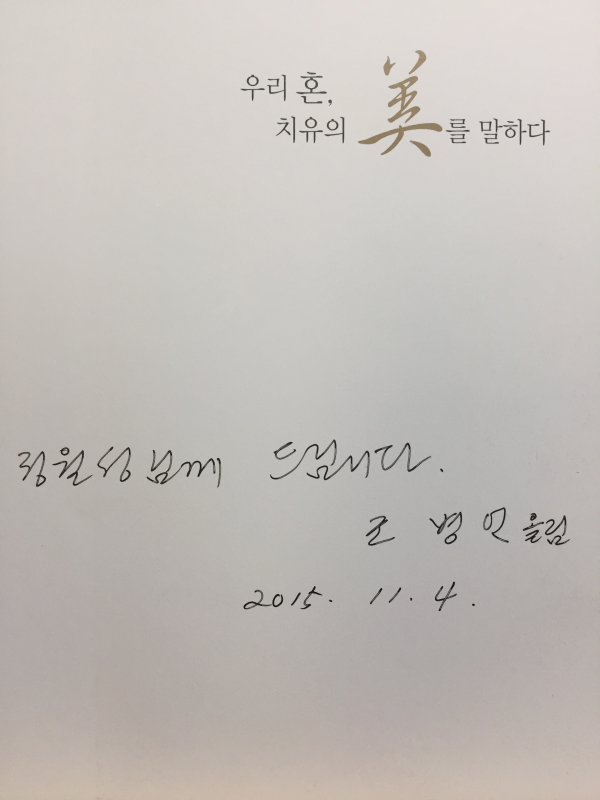 우리 혼,
치유의 美를 말하다
정월성 님께 드립니다.
조병언 올림
2015. 11. 4.